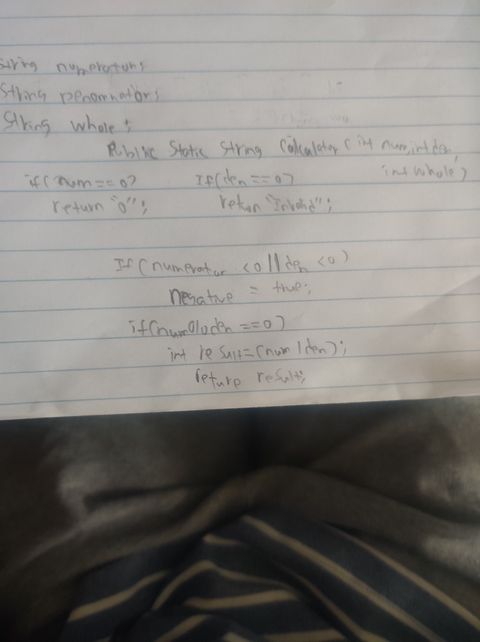 String numerators
String Denominators
String whole;
Public Static String Calculator (int num, int den,
int whole)
if(num == 0) If(den == 0)
return "0"; return "Invalid";
If(numerator <0 || den <0)
negative = true;
if(num%den ==0)
int result=(num/den);
return result;